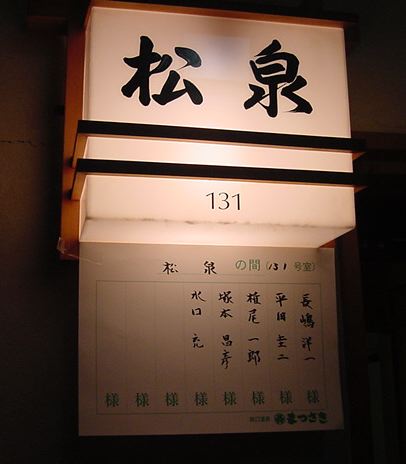 松泉
131
松泉の間(131号室)
長嶋洋一様
平田圭二様
植尾一郎様
塚本昌彦様
水口充様
様
様
様
まつさき